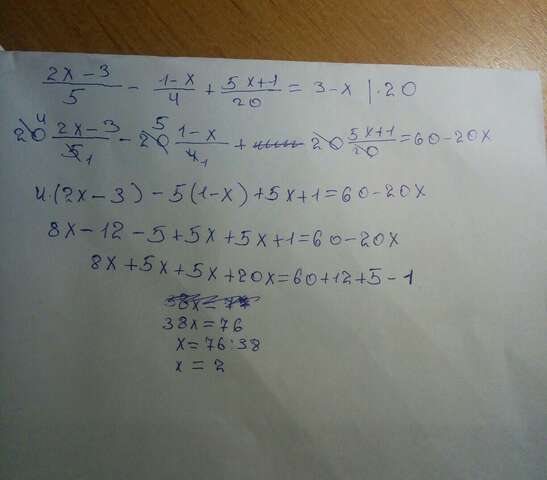 (2x-3)/5 - (1-x)/4 + (5x+1)/20 = 3-x |·20
20 (2x-3)/5 - 20 (1-x)/4 + 20 (5x+1)/20 = 60-20x
4·(2x-3)-5(1-x)+5x+1=60-20x
8x-12-5+5x+5x+1=60-20x
8x+5x+5x+20x=60+12+5-1
38x=76
x=76:38
x=2